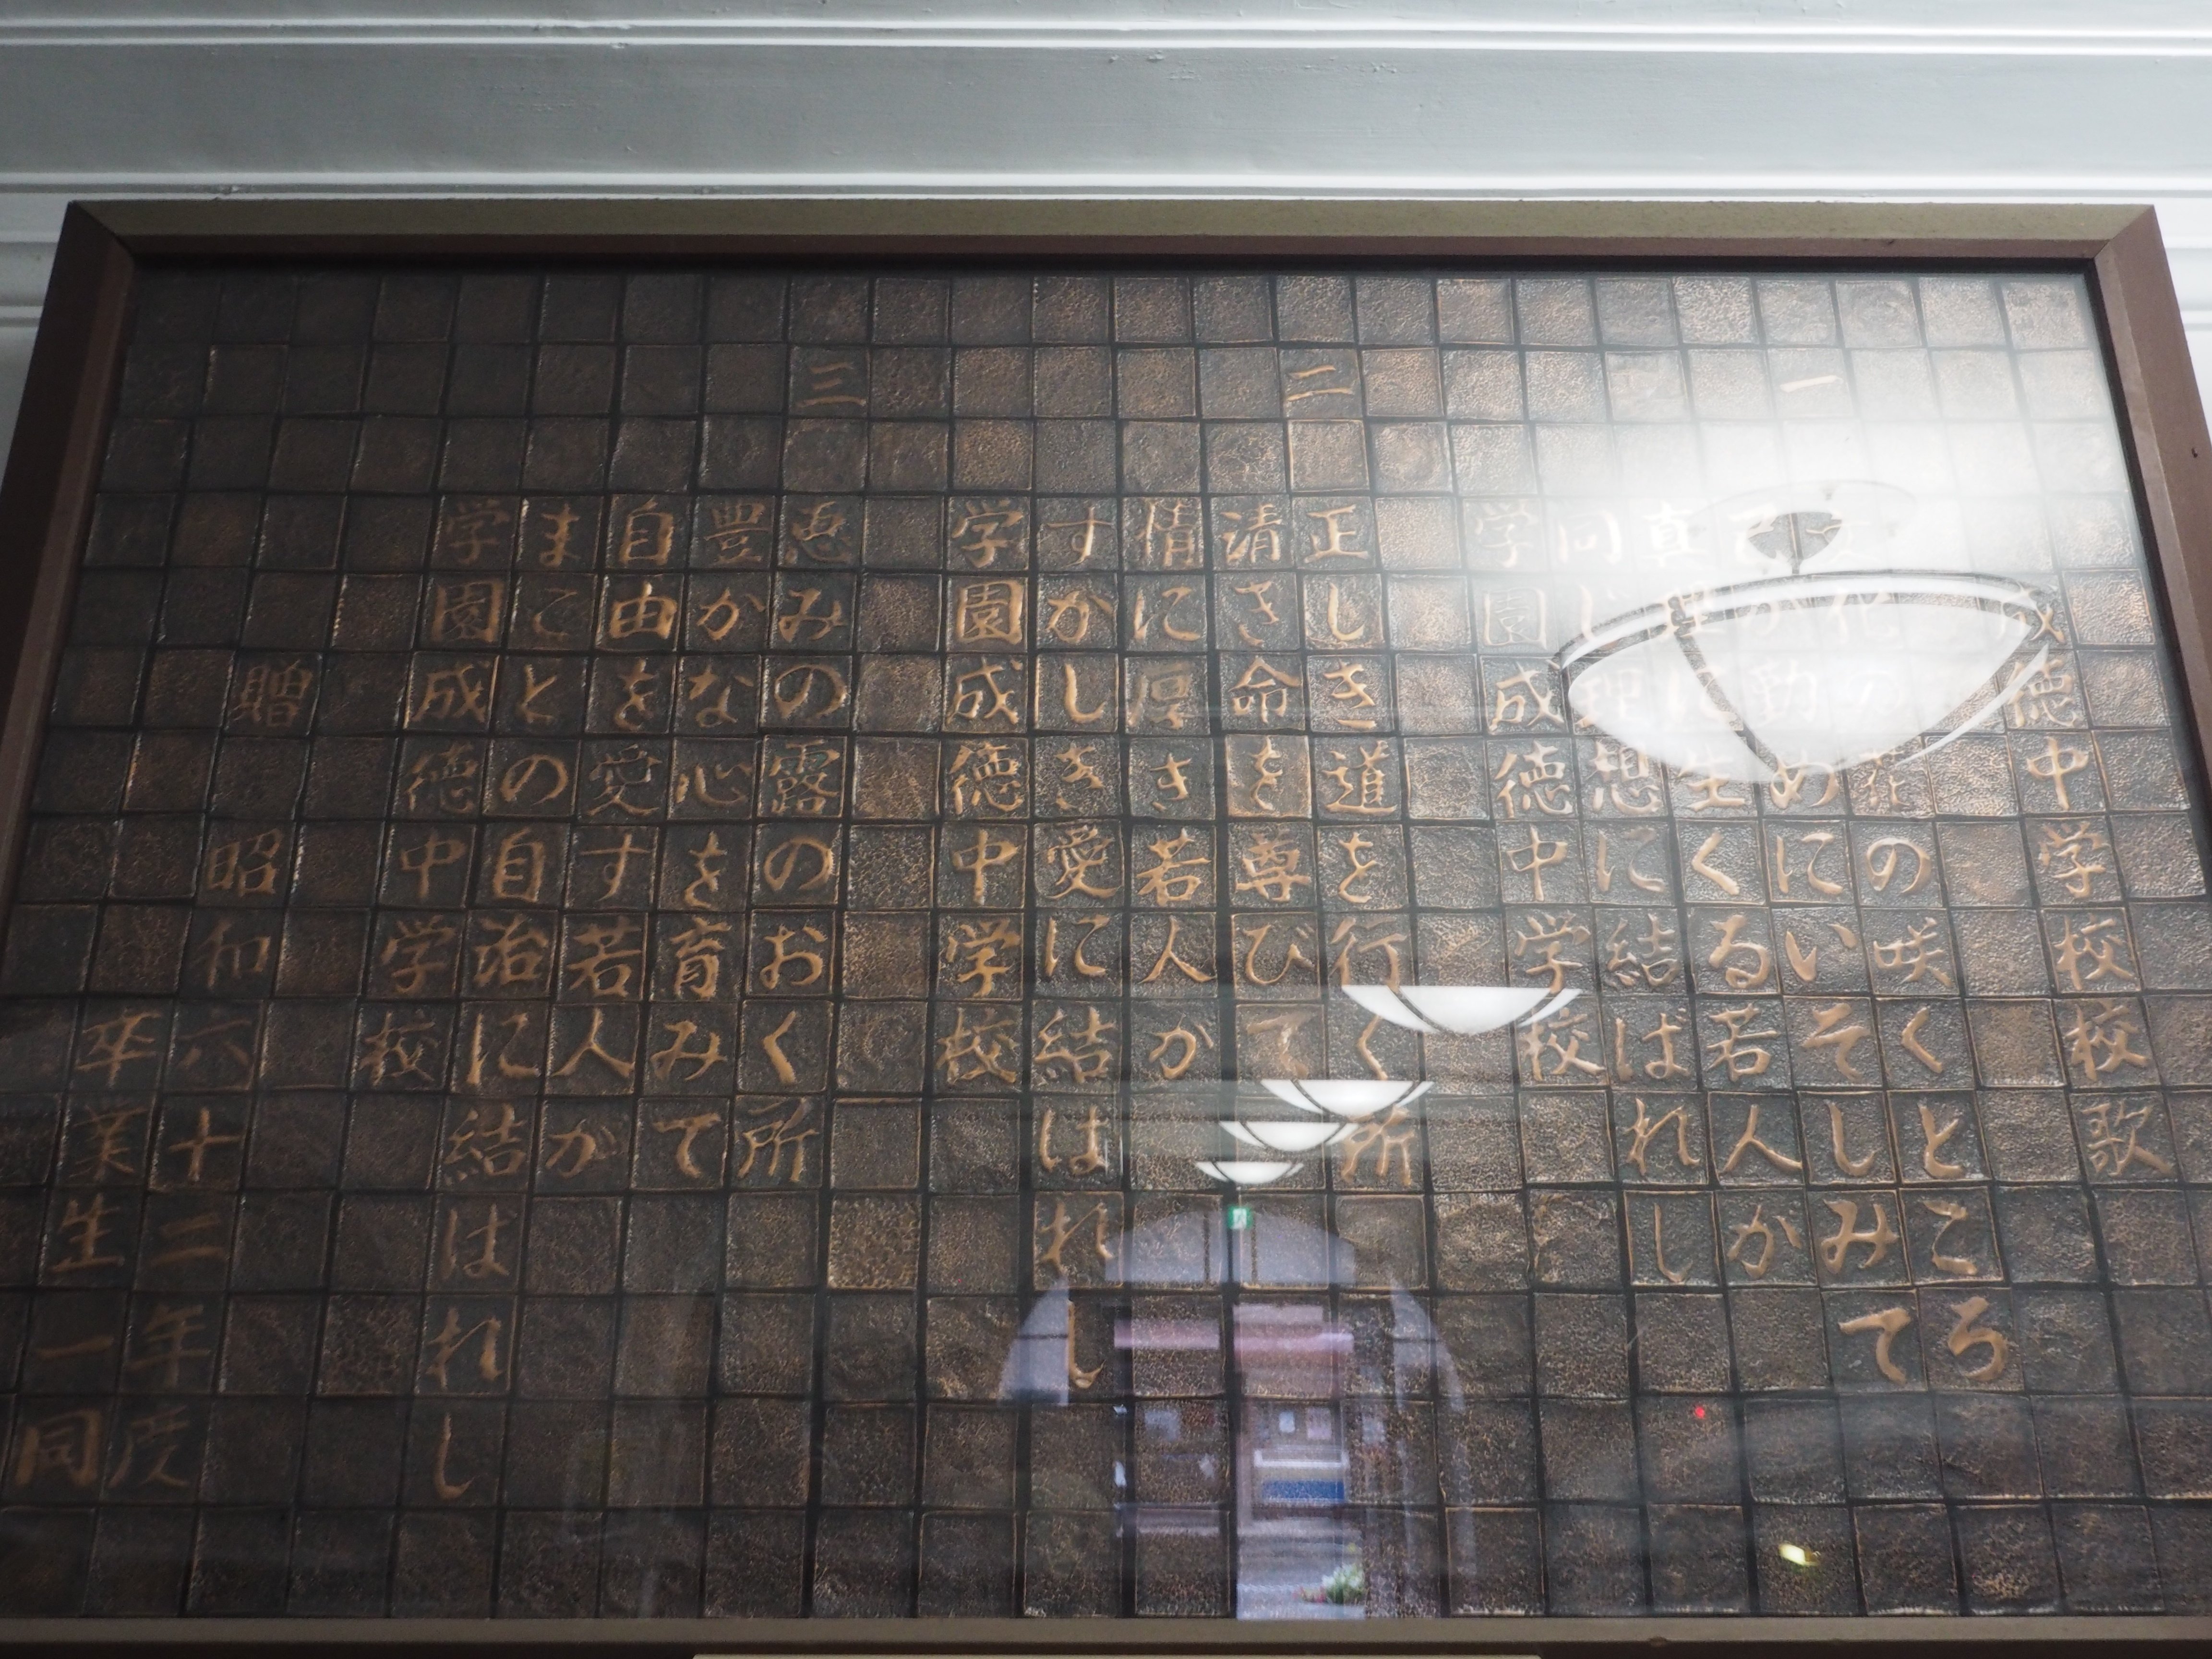 成徳中学校校歌
一
文化の花の咲くところ
てが勤めにいそしみて
真理に生くる若人が
同じ理想に結ばれし
学園成徳中学校
二
正しき道を行く所
清き命を尊びて
情に厚き若人が
すがしき愛に結ばれし
学園成徳中学校
三
恵みの露のおく所
豊かな心を育みて
自由を愛す若人が
まことの自治に結ばれし
学園成徳中学校
贈 昭和六十二年度
卒業生一同